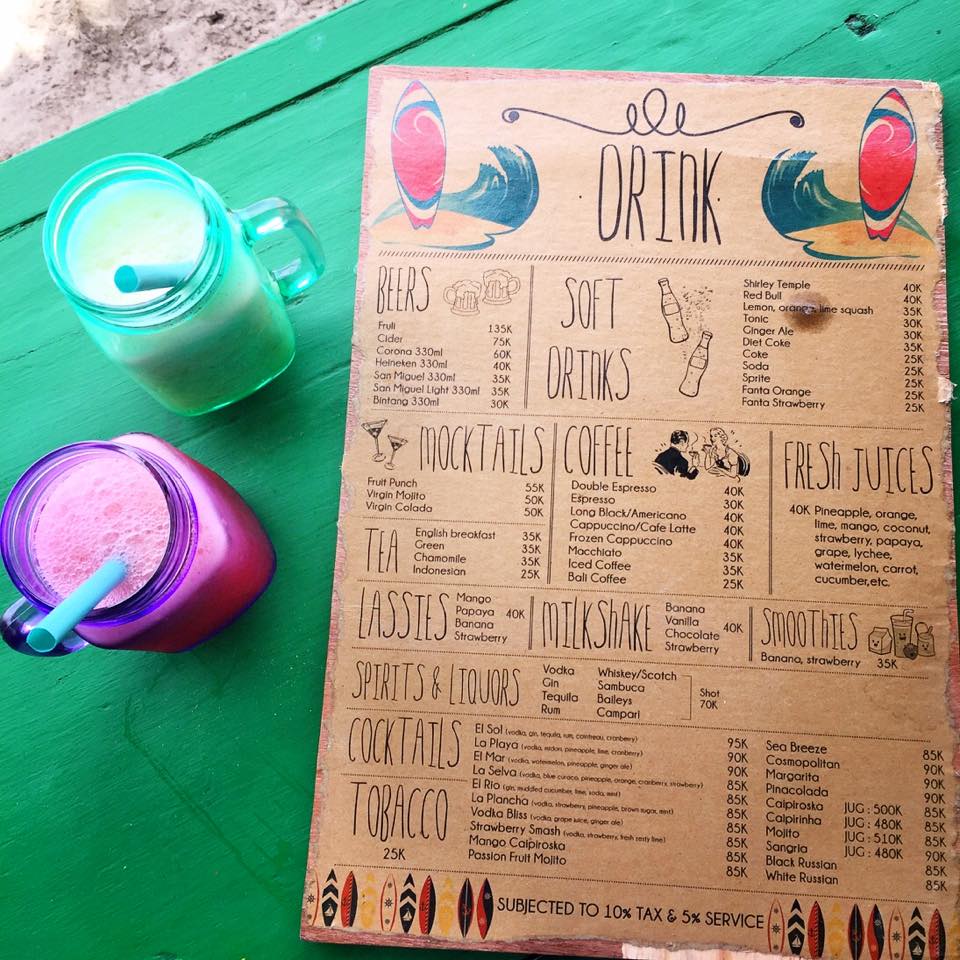 DRINK
BEERS
Fruli 135K
Cider 75K
Corona 330ml 60K
Heineken 330ml 40K
San Miguel 330ml 35K
San Miguel Light 330ml 35K
Bintang 330ml 30K
SOFT
DRINKS
Shirley Temple 40K
Red Bull 40K
Lemon, orange, lime squash 35K
Tonic 30K
Ginger Ale 30K
Diet Coke 35K
Coke 25K
Soda 25K
Sprite 25K
Fanta Orange 25K
Fanta Strawberry 25K
MOCKTAILS
Fruit Punch 55K
Virgin Mojito 50K
Virgin Colada 50K
TEA
English breakfast 35K
Green 35K
Chamomile 35K
Indonesian 25K
COFFEE
Double Espresso 40K
Espresso 30K
Long Black/Americano 40K
Cappuccino/Cafe Latte 40K
Frozen Cappuccino 40K
Macchiato 35K
Iced Coffee 35K
Bali Coffee 25K
FRESH JUICES
40K Pineapple, orange,
lime, mango, coconut,
strawberry, papaya,
grape, lychee,
watermelon, carrot,
cucumber,etc.
LASSIES
Mango
Papaya 40K
Banana
Strawberry
MILKSHAKE
Banana
Vanilla
Chocolate 40K
Strawberry
SMOOTHIES
Banana, strawberry 35K
SPIRITS & LIQUORS
Vodka Whiskey/Scotch
Gin Sambuca
Tequila Baileys
Rum Campari
Shot
70K
COCKTAILS
El Sol (vodka, gin, tequila, rum, cointreau, cranberry) 95K
La Playa (vodka, midori, pineapple, lime, cranberry) 90K
El Mar (vodka, watermelon, pineapple, ginger ale) 90K
La Selva (vodka, blue curaco, pineapple, orange, cranberry, strawberry) 85K
El Rio (gin, muddled cucumber, lime, soda, mint) 85K
La Plancha (vodka, strawberry, pineapple, brown sugar, mint) 85K
Vodka Bliss (vodka, grape juice, ginger ale) 85K
Strawberry Smash (vodka, strawberry, fresh zesty lime) 85K
Mango Caipiroska 85K
Passion Fruit Mojito 85K
Sea Breeze 85K
Cosmopolitan 90K
Margarita 85K
Pinacolada 90K
Caipiroska JUG : 500K 85K
Caipirinha JUG : 480K 85K
Mojito JUG : 510K 85K
Sangria JUG : 480K 90K
Black Russian 85K
White Russian 85K
TOBACCO
25K
SUBJECTED TO 10% TAX & 5% SERVICE